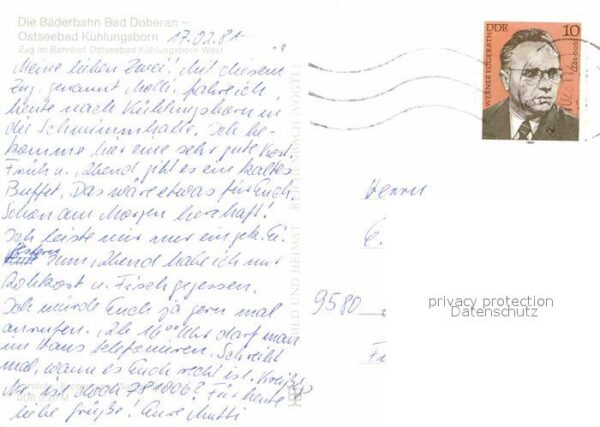 Die Bäderbahn Bad Doberan –
Ostseebad Kühlungsborn 17.02.81
Zug im Bahnhof Ostseebad Kühlungsborn-West
Meine lieben Zwei! Mit diesem
Zug, genannt Molli, fahre ich
heute nach Kühlungsborn in
die Schwimmhalle. Ich be-
komme hier eine sehr gute Kost.
Früh u. Abend gibt es ein kaltes
Buffet. Das wäre etwas für Euch.
Schon am Morgen herzhaft!
Ich leiste mir nur ein gek. Ei.
Gestern zum Abend habe ich nur
Rohkost u. Fisch gegessen.
Ich würde Euch ja gern mal
anrufen. Ab 16⁰⁰ Uhr darf man
im Haus telefonieren. Schreibt
mal, wann es Euch recht ist.
Nr. ist doch 7810062? Für heute
liebe Grüße! Eure Mutti
BILD UND HEIMAT REICHENBACH (VOGTL)
WERNER EGGERATH
DDR 10
1900-1977
Herrn
9580
privacy protection
Datenschutz